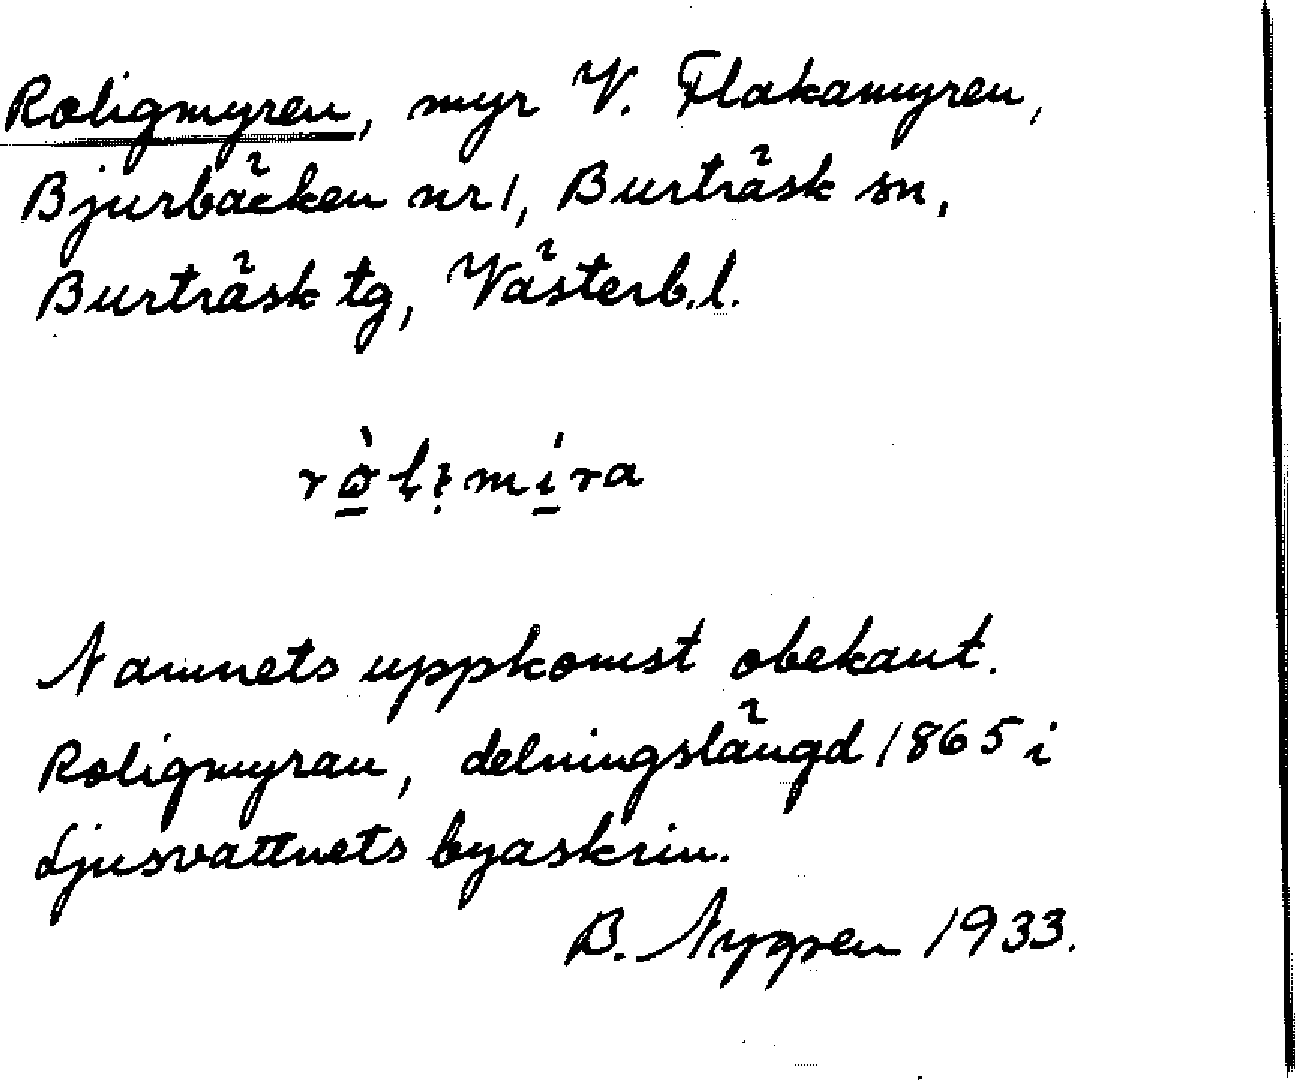 Roligmyren, myr V. Flakamyren,
Bjurbäcken nr 1, Burträsk sn,
Burträsk tg, Västerb.l.
Namnets uppkomst obekant.
Roligmyran, delningslängd 1865 i
Ljusvattnets byaskrin.
B. Nygren 1933.